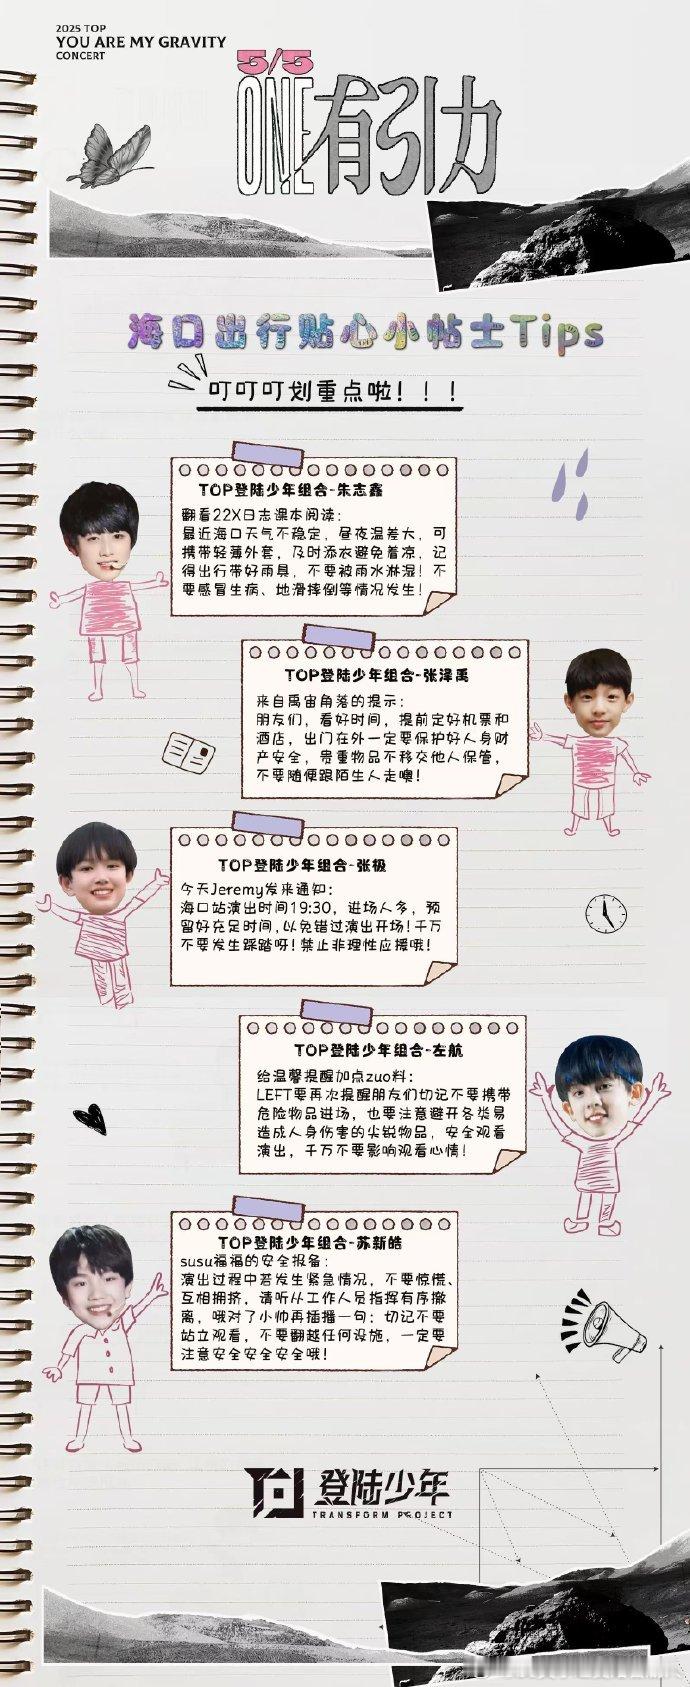 2025 TOP
YOU ARE MY GRAVITY
CONCERT
5/5
ONE有引力
海口出行贴心小帖士Tips
叮叮叮划重点啦！！！
TOP登陆少年组合-朱志鑫
翻看22X日志课本阅读：
最近海口天气不稳定，昼夜温差大，可
携带轻薄外套，及时添衣避免着凉，记
得出行带好雨具，不要被雨水淋湿！不
要感冒生病、地滑摔倒等情况发生！
TOP登陆少年组合-张泽禹
来自禹宙角落的提示：
朋友们，看好时间，提前定好机票和
酒店，出门在外一定要保护好人身财
产安全，贵重物品不移交他人保管，
不要随便跟陌生人走噢！
TOP登陆少年组合-张极
今天Jeremy发来通知：
海口站演出时间19:30，进场人多，预
留好充足时间,以免错过演出开场！千万
不要发生踩踏呀！禁止非理性应援哦！
TOP登陆少年组合-左航
给温馨提醒加点zuo料：
LEFT要再次提醒朋友们切记不要携带
危险物品进场，也要注意避开各类易
造成人身伤害的尖锐物品，安全观看
演出，千万不要影响观看心情！
TOP登陆少年组合-苏新皓
susu福福的安全报备：
演出过程中若发生紧急情况，不要惊慌、
互相拥挤，请听从工作人员指挥有序撤
离，哦对了小帅再插播一句：切记不要
站立观看，不要翻越任何设施，一定要
注意安全安全安全哦！
TOP 登陆少年
TRANSFORM PROJECT